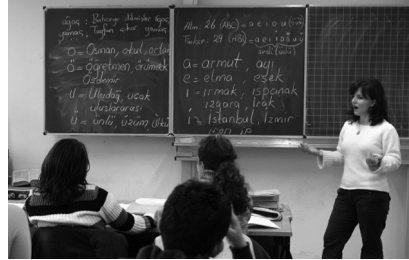 ağaç : Bahçeye dikmişler
yemiş, Tayfun okur yazmaz
o = Osman, okul, orta
ö = öğretmen, örümcek
Özdemir
u = Uludağ, uçak
uluslararası
ü = ünlü, üzüm
Alm. 26 (ABC) = a e i o u
Türkçe : 29 (ABC) = a e ı i o ö u ü
a = armut, ayı
e = elma, eşek
ı = ırmak, ıspanak
ızgara, Irak
i = İstanbul, İzmir